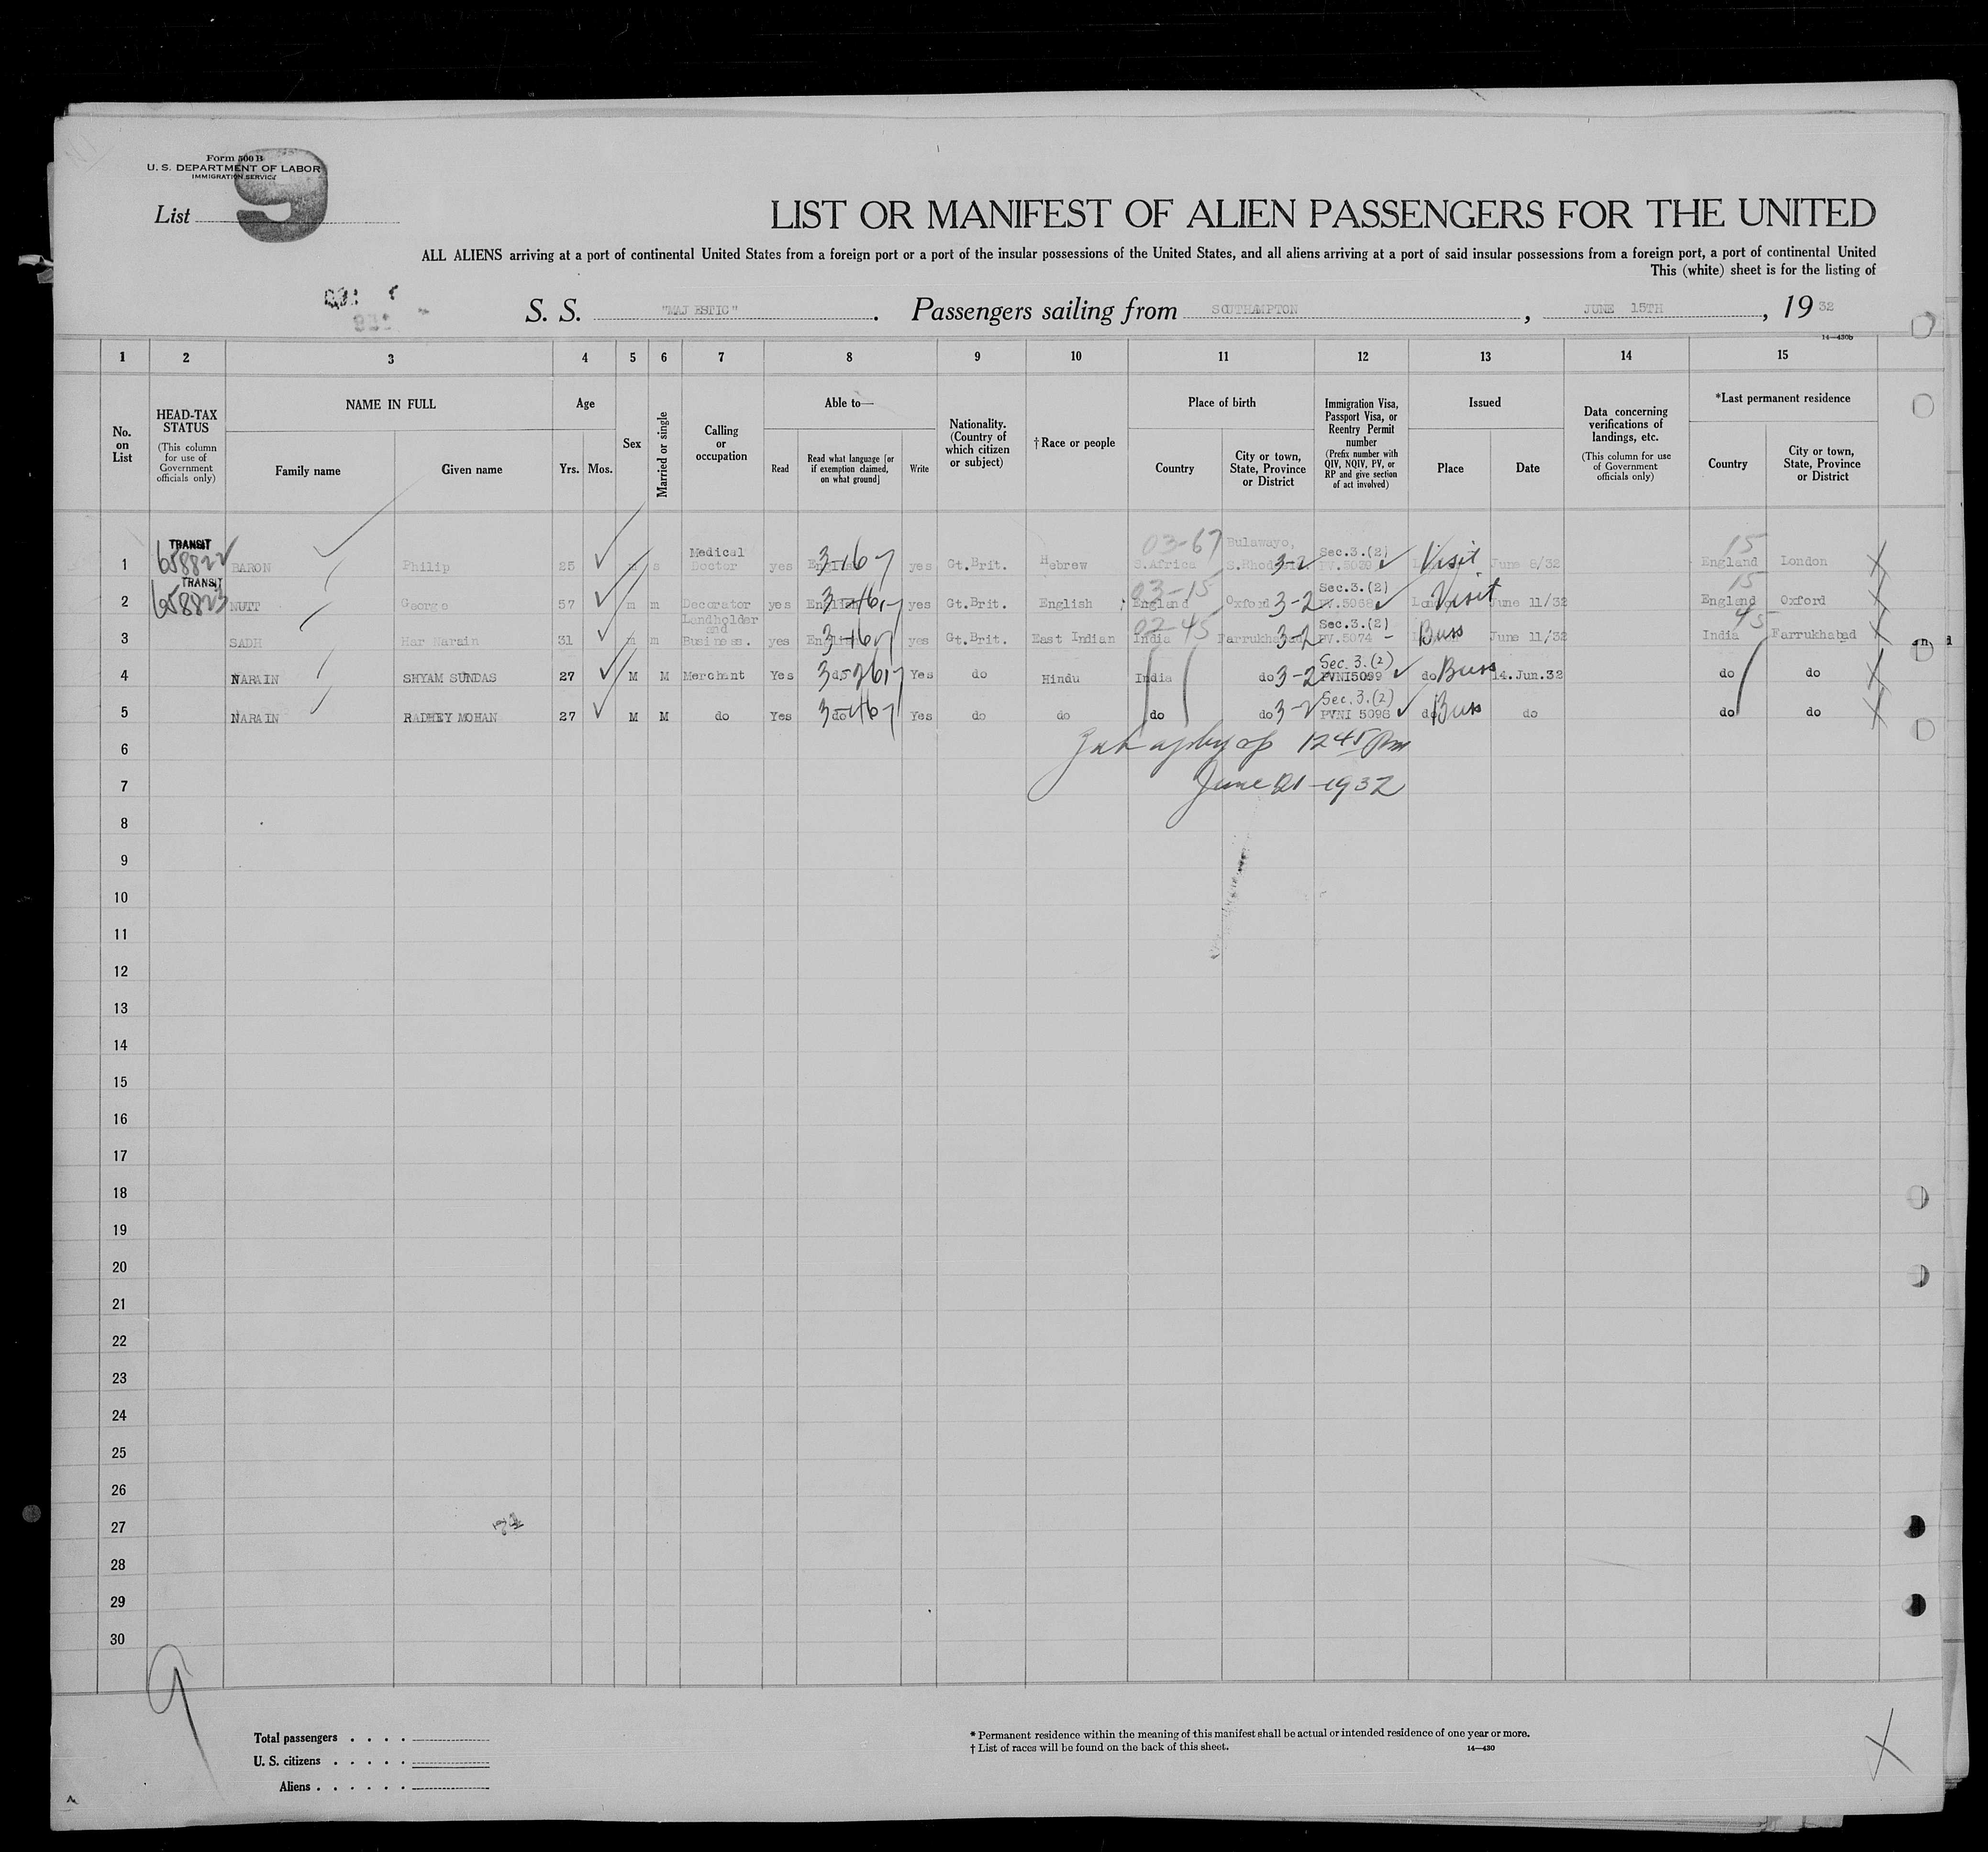 Form 500 B
U. S. DEPARTMENT OF LABOR
IMMIGRATION SERVICE
List 9
LIST OR MANIFEST OF ALIEN PASSENGERS FOR THE UNITED
ALL ALIENS arriving at a port of continental United States from a foreign port or a port of the insular possessions of the United States, and all aliens arriving at a port of said insular possessions from a foreign port, a port of continental United
This (white) sheet is for the listing of
S. S. "MAJESTIC". Passengers sailing from SOUTHAMPTON, JUNE 15TH, 1932
14—430b
1 2 3 4 5 6 7 8 9 10 11 12 13 14 15
No. on List
HEAD-TAX STATUS
(This column for use of Government officials only)
NAME IN FULL
Family name
Given name
Age
Yrs.
Mos.
Sex
Married or single
Calling or occupation
Able to—
Read
Read what language [or if exemption claimed, on what ground]
Write
Nationality. (Country of which citizen or subject)
†Race or people
Place of birth
Country
City or town, State, Province or District
Immigration Visa, Passport Visa, or Reentry Permit number
(Prefix number with QIV, NQIV, PV, or RP and give section of act involved)
Issued
Place
Date
Data concerning verifications of landings, etc.
(This column for use of Government officials only)
*Last permanent residence
Country
City or town, State, Province or District
TRANSIT 03-67 Bulawayo, Sec.3.(2) 15
1 658822 BARON Philip 25 m s Medical Doctor yes English 3-167 yes Gt.Brit. Hebrew S.Africa S.Rhodesia 3-2 PV.5039 Visit June 8/32 England London
TRANSIT 03-15 Sec.3.(2) 15
2 658823 NUTT George 57 m m Decorator yes English yes Gt.Brit. English England Oxford 3-2 PV.5068 London Visit June 11/32 England Oxford
02-45 Sec.3.(2) 45
3 SADH Har Narain 31 m m Landholder and Business. yes English 3-167 yes Gt.Brit. East Indian India Farrukhabad 3-2 PV.5074 Buss June 11/32 India Farrukhabad
Sec. 3.(2)
4 NARAIN SHYAM SUNDAS 27 M M Merchant Yes do Yes do Hindu India do 3-2 PVNI5099 do Buss 14.Jun.32 do do
Sec.3.(2)
5 NARAIN RADHEY MOHAN 27 M M do Yes do Yes do do do do 3-2 PVNI 5098 do Buss do do do
6 1245 Pm
7 June 21-1932
8
9
10
11
12
13
14
15
16
17
18
19
20
21
22
23
24
25
26
27
28
29
30
9
Total passengers . . . .
U. S. citizens . . . . .
Aliens . . . . . .
* Permanent residence within the meaning of this manifest shall be actual or intended residence of one year or more.
† List of races will be found on the back of this sheet.
14—430